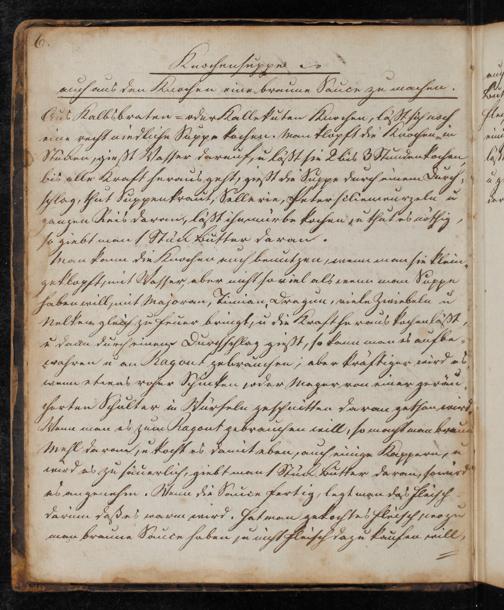 6.
Knochensuppe
auch aus den Knochen eine braune Sauce zu machen.
Aus Kalbsbraten- oder Kallekuten Knochen, läßt sich noch
eine recht niedliche Suppe kochen. Man klopft die Knochen, in
Stücken, gießt Wasser darauf, u läßt sie 2 bis 3 Stunden kochen,
bis alle Kraft heraus geht, gießt die Suppe durch einem Durch-
schlag, thut Suppenkraut, Sellerie, Petersilienwurzeln u
ganzen Reis daran, läßt ihn mürbe kochen, u thut es nöthig,
so giebt man 1 Stück Butter daran.
Man kann die Knochen auch benutzen, wenn man sie klein
geklopft, mit Wasser aber nicht so viel als wenn man Suppe
haben will, mit Majoran, Timian, Dragun, viele Zwiebeln u
Nelken gleich zu Feuer bringt, u die Kraft heraus kochen läßt,
u dann durch einen Durchschlag gießt, so kann man es aufbe-
wahren u an Ragout gebrauchen; aber kräftiger wird es
wenn etwas roher Schinken, oder Mager von einer geräu-
cherten Schulter in Würfeln geschnitten daran gethan wird
Wenn man es zum Ragout gebrauchen will, so macht man braun
Mehl daran, u kocht es damit eben, auch einige Kappern, u
wird es zu säuerlich, giebt man 1 Stück Butter daran, so wird
es angenehm. Wenn die Sauce fertig, legt man das Fleisch
darin daß es warm wird. Hat man gekochtes Fleisch, wozu
man braune Sauce haben, u nicht Fleisch dazu kaufen will,